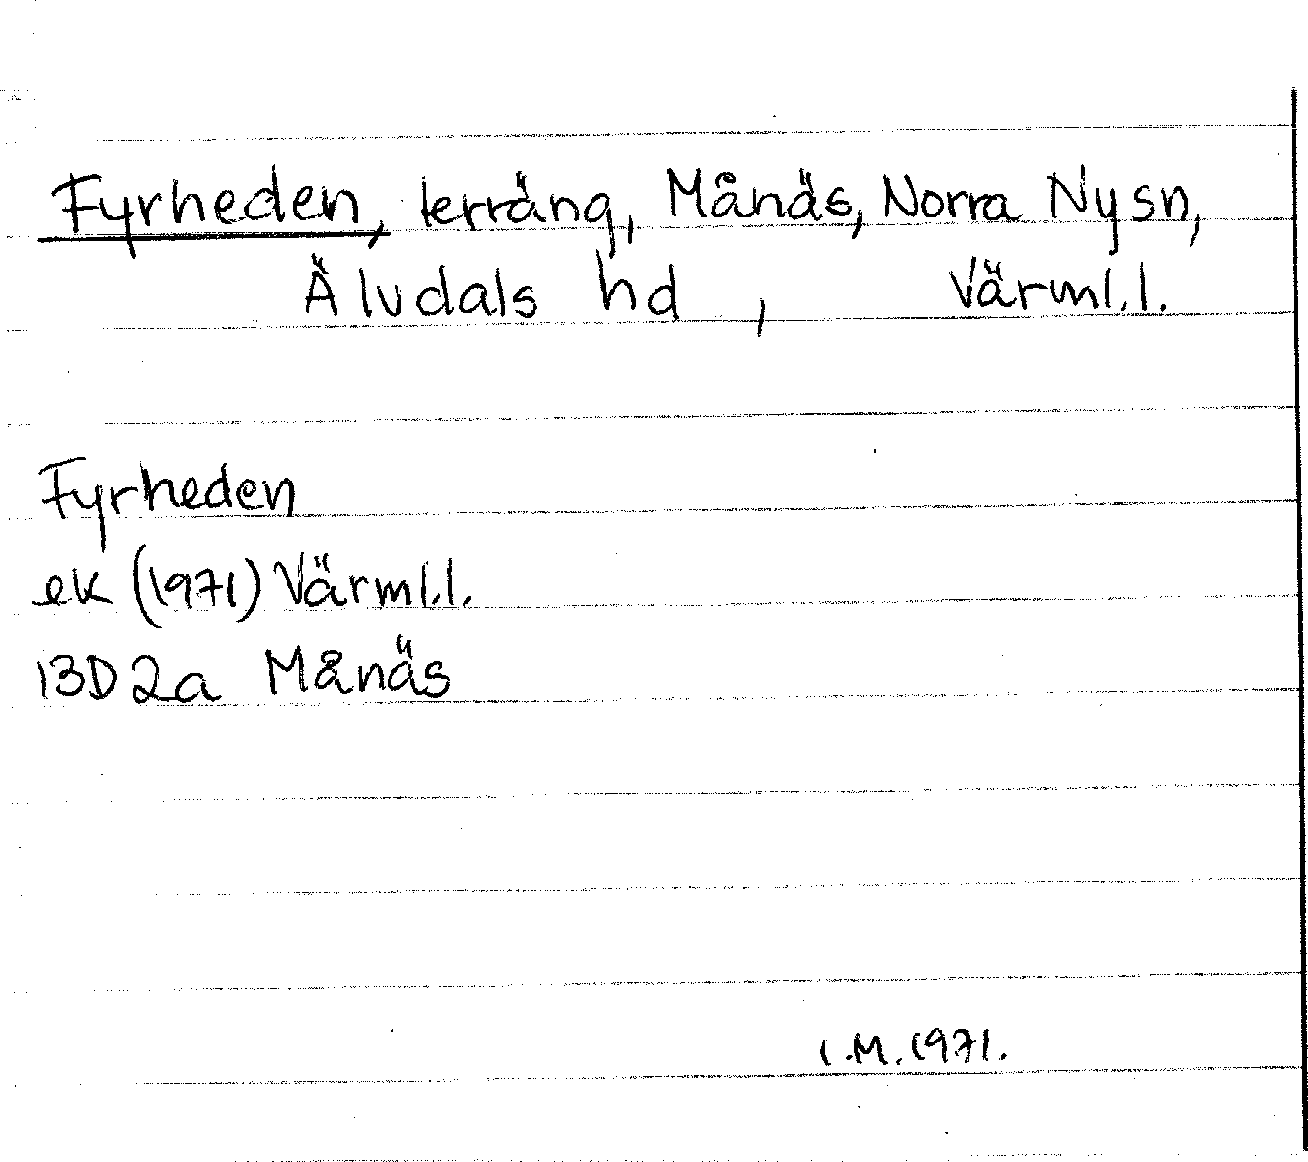 Fyrheden, terräng, Månäs, Norra Nysn,
Älvdals hd, Värml.l.
Fyrheden
ek (1971) Värml.l.
13D2a Månäs
I.M.1971.